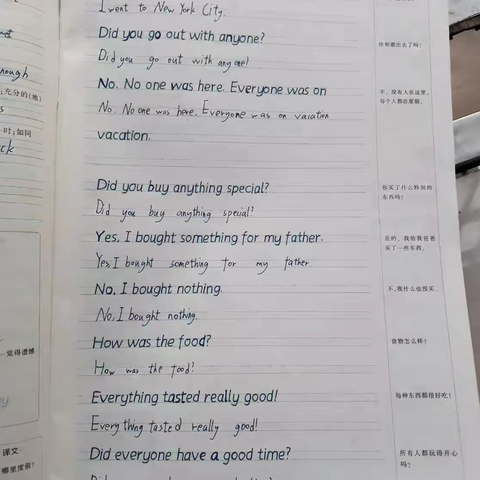 I went to New York City.
Did you go out with anyone?
你和谁出去了吗?
Did you go out with anyone?
No. No one was here. Everyone was on
不,没有人在这里。
每个人都在度假。
No. No one was here. Everyone was on vacation
vacation.
Did you buy anything special?
你买了什么特别的
东西吗?
Did you buy anything special?
Yes, I bought something for my father.
是的,我给我爸爸
买了一些东西。
Yes, I bought something for my father.
No, I bought nothing.
不,我什么也没买。
No, I bought nothing.
How was the food?
食物怎么样?
How was the food?
Everything tasted really good!
每种东西都很好吃!
Every thing tasted really good!
Did everyone have a good time?
所有人都玩得开心
吗?
nough
充分的(地)
时;如同
ck
觉得遗憾
译文
哪里度假?